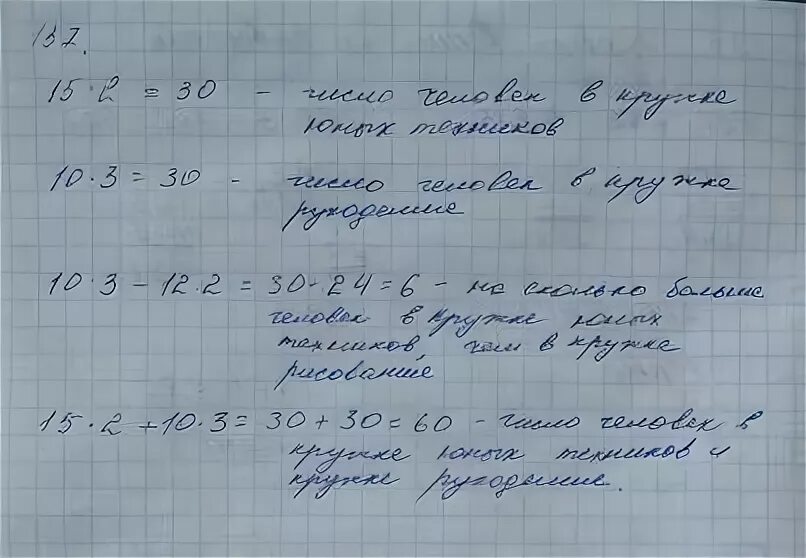 137.
15 · 2 = 30 - число человек в кружке
юных техников
10 · 3 = 30 - число человек в кружке
рукоделие
10 · 3 - 12 · 2 = 30 - 24 = 6 - на сколько больше
человек в кружке юных
техников, чем в кружке
рисование
15 · 2 + 10 · 3 = 30 + 30 = 60 - число человек в
кружке юных техников и
кружке рукоделие.